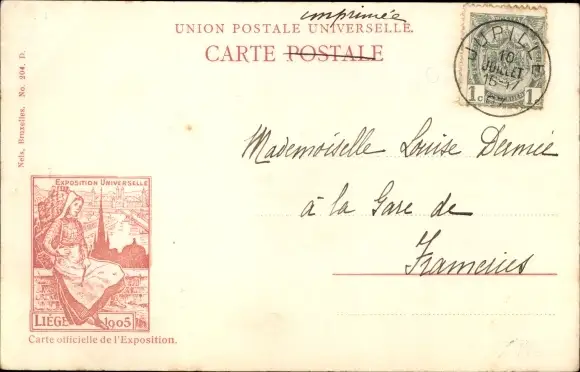 imprimée
UNION POSTALE UNIVERSELLE.
CARTE POSTALE
JUPILLE
10
JUILLET
15-17
07
1 c 1
Nels, Bruxelles. No. 204. D.
Mademoiselle Louise Dermiée
à la Gare de
Frameries
EXPOSITION UNIVERSELLE
LIÉGE 1905
Carte officielle de l'Exposition.